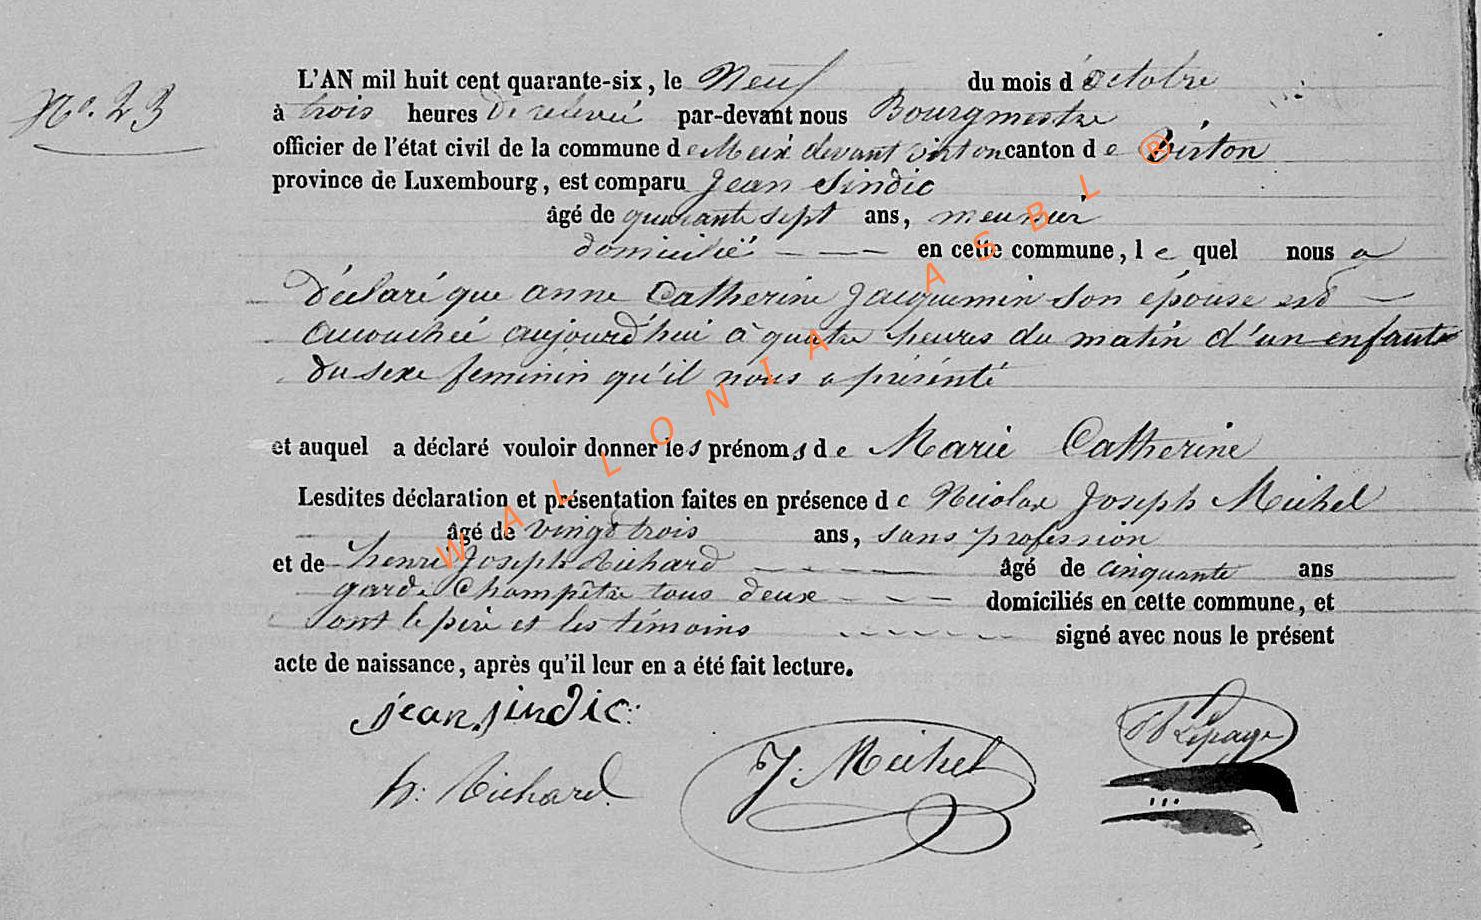 No. 23
L'AN mil huit cent quarante-six, le Neuf du mois d'octobre
à trois heures de relevée par-devant nous Bourgmestre
officier de l'état civil de la commune de Meix devant virton canton de Virton
province de Luxembourg, est comparu Jean Sindic
âgé de quarante sept ans, meunier
domicilié - — - — en cette commune, le quel nous a
déclaré que anne Catherine Jacquemin son épouse est —
accouchée aujourd'hui à quatre heures du matin d'un enfant
du sexe feminin qu'il nous a présenté
et auquel a déclaré vouloir donner les prénoms de Marie Catherine
Lesdites déclaration et présentation faites en présence de Nicolas Joseph Michel
âgé de vingt trois ans, sans profession
et de henri Joseph Richard âgé de cinquante ans
garde Champêtre tous deux domiciliés en cette commune, et
sont le père et les témoins signé avec nous le présent
acte de naissance, après qu'il leur en a été fait lecture.
jean sindic
h. Richard J. Michel Lepage
WALLONIA ASBL ®